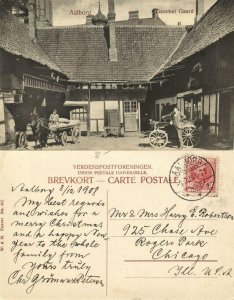 Aalborg
Gammel Gaard
VERDENSPOSTFORENINGEN.
UNION POSTALE UNIVERSELLE.
BREVKORT – CARTE POSTALE
Aalborg 2/12 1909
My best regards
and wishes for a
merry Christmas
and a happy New
year to the whole
family from
Yours truly
Chr
Mr & Mrs Harry G. Robertson
925 Chase Ave
Rogers Park
Chicago
Ill. U.S.A